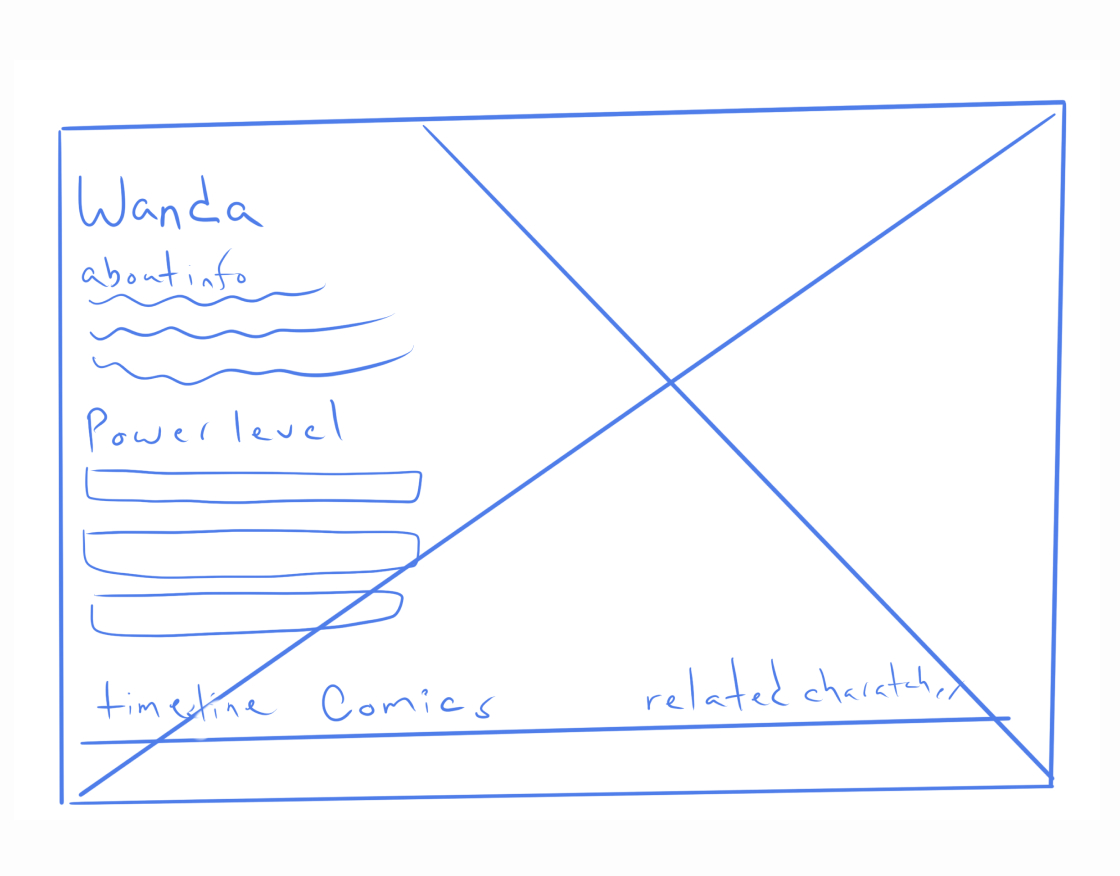 Wanda
about info
Power level
timeline Comics related